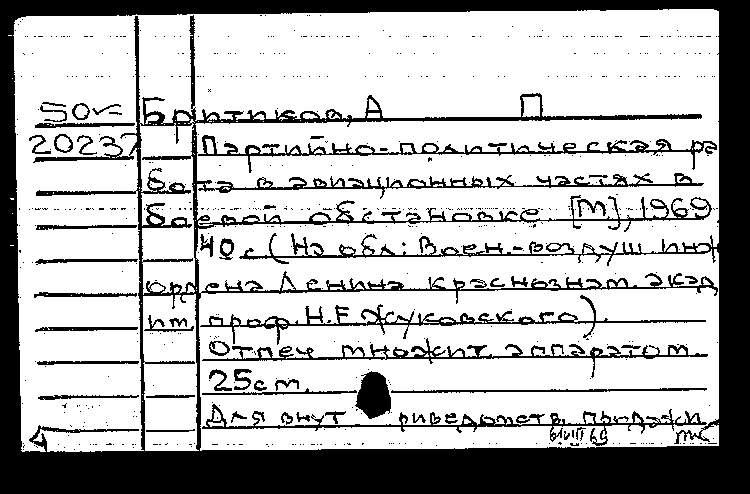 50к Бритиков, А П
20237 Партийно-политическая ра
бота в авиационных частях в
боевой обстановке. [М], 1969.
40 с (На обл: Воен.-воздуш инж
ордена Ленина краснознам. акад
им проф. Н.Е Жуковского).
Отпеч множит. аппаратом.
25см.
Для внут риведомств.
4